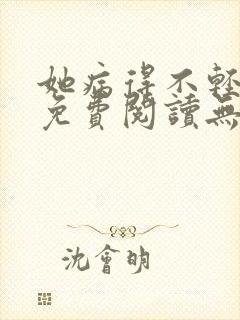 她病得不輕
免費閱讀無
沈會明